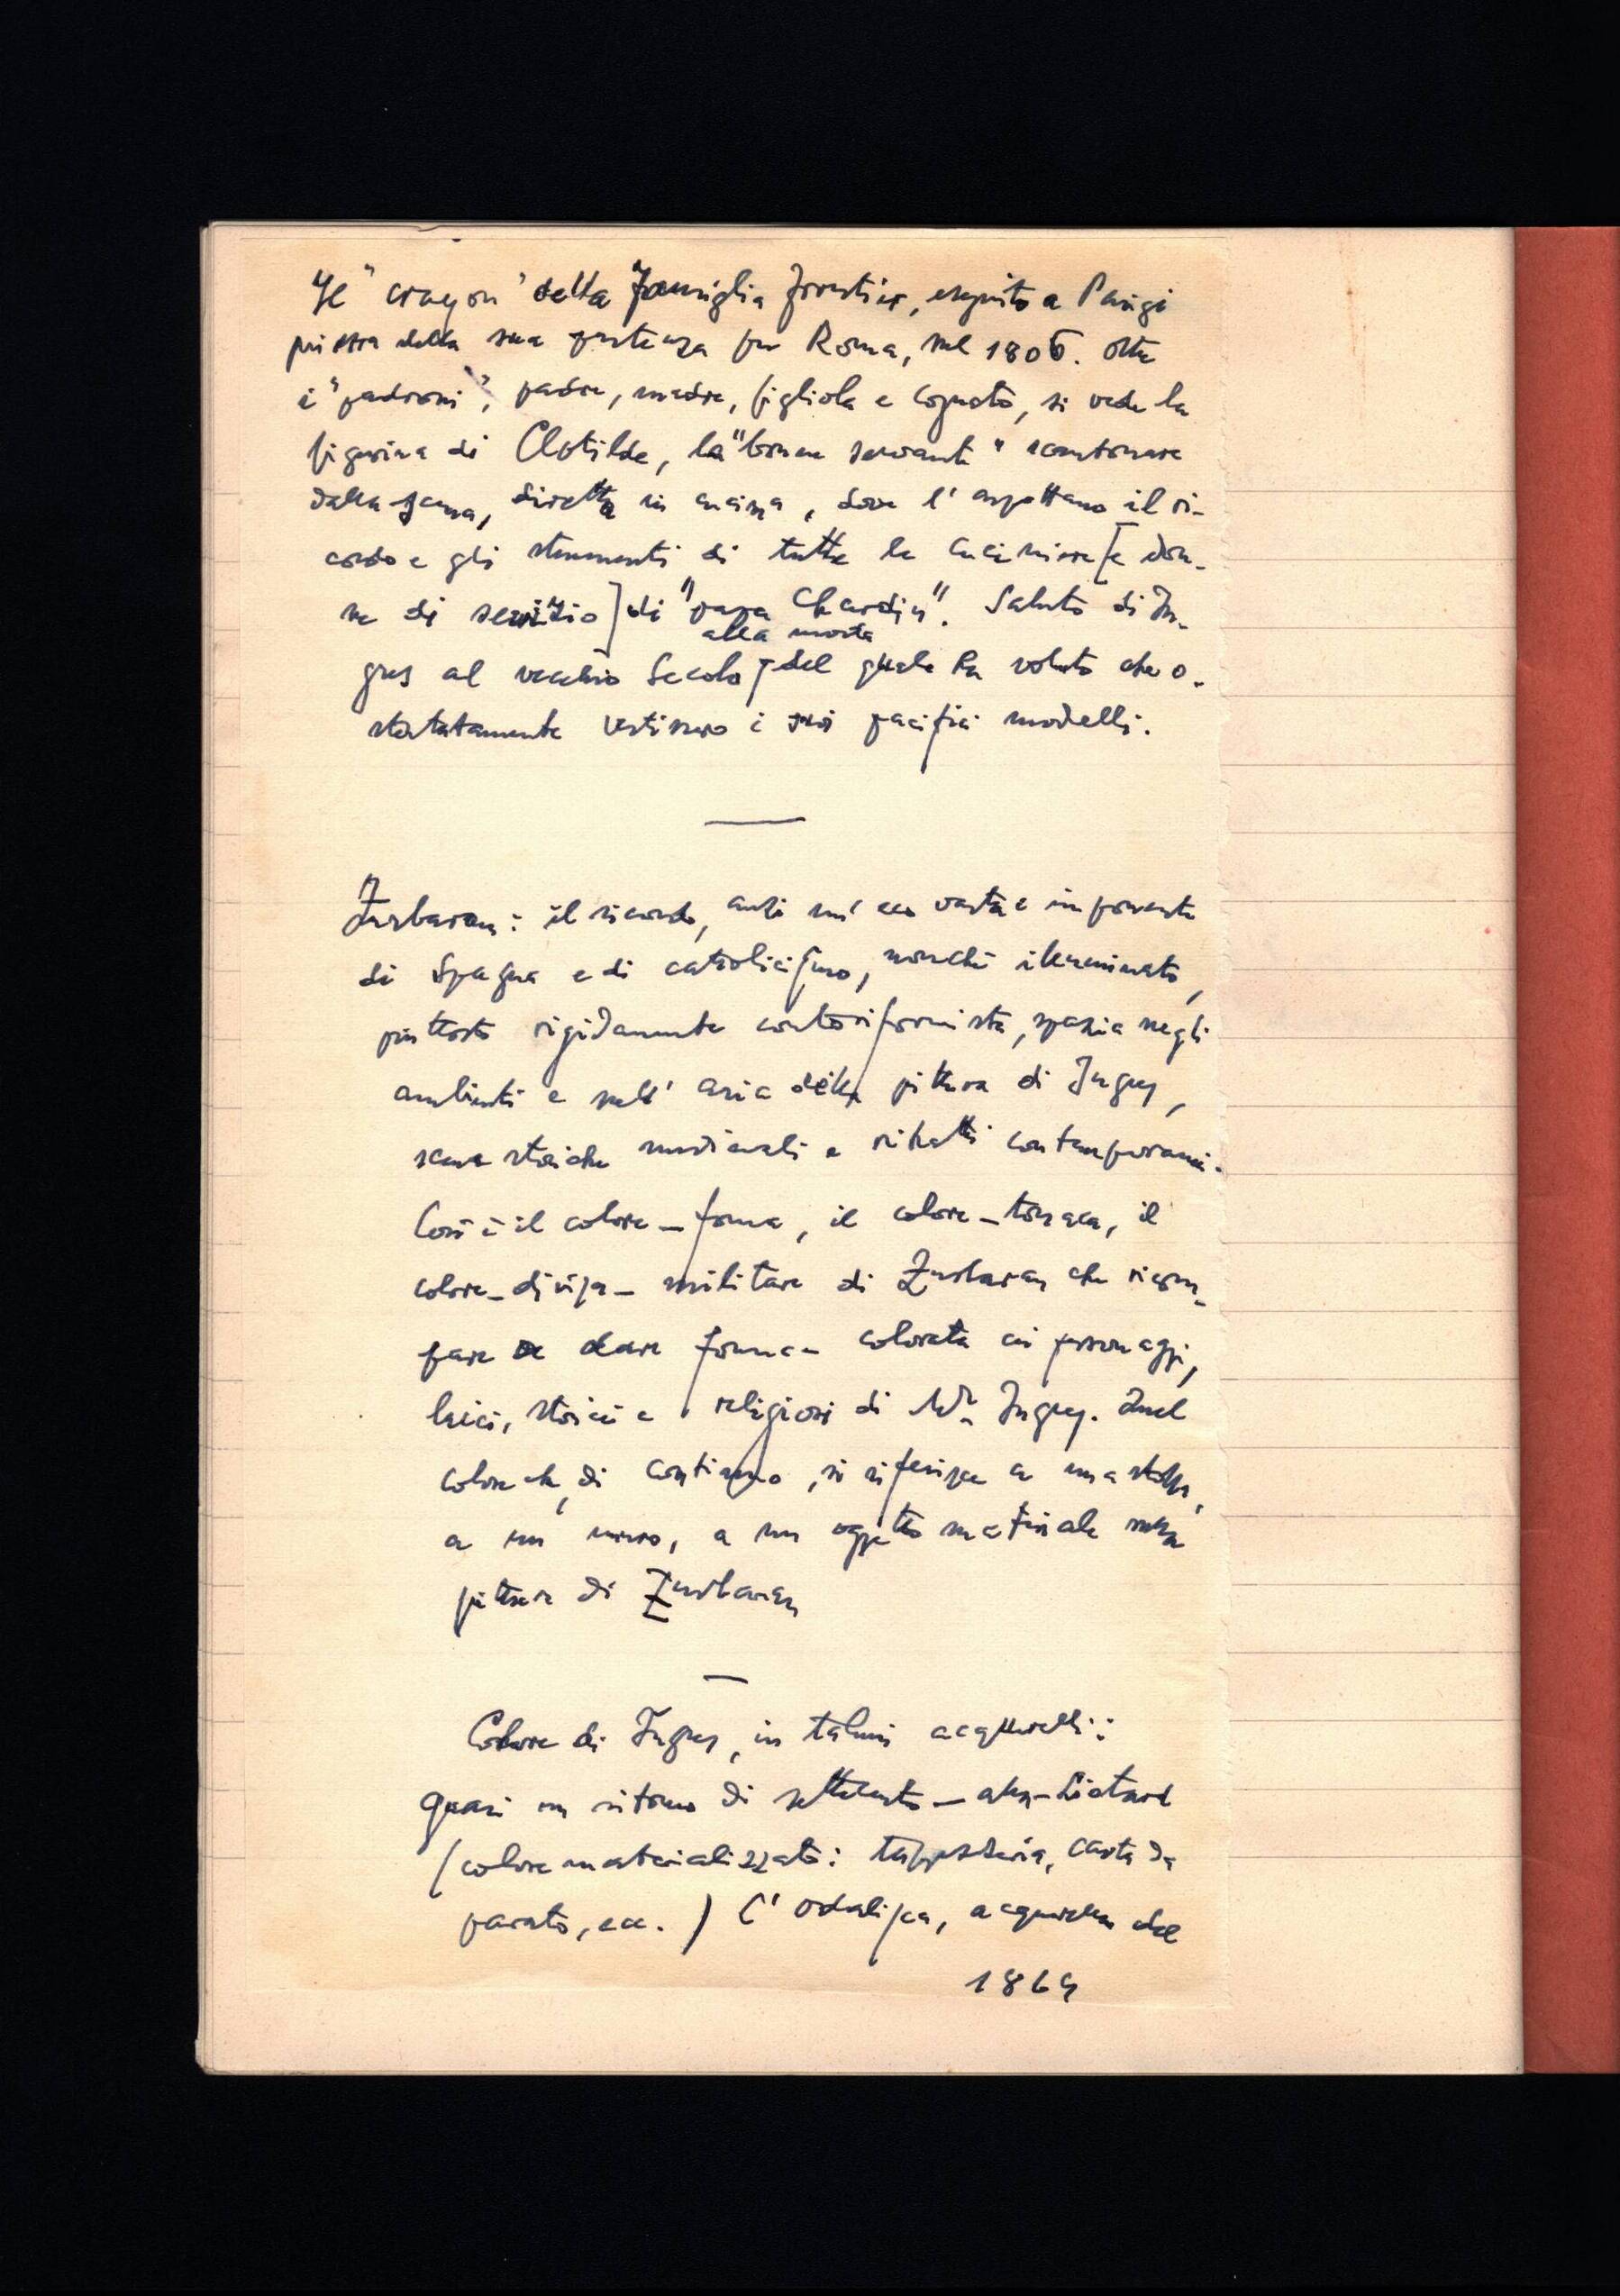 Il "crayon" della famiglia Forestier, eseguito a Parigi
prima della sua partenza per Roma, nel 1806. Oltre
i "padroni", padre, madre, figliola e cognato, si vede la
figurina di Clotilde, la "bonne servante" scantonare
dalla scena, diretta in cucina, dove l'aspettano il ri-
cordo e gli strumenti di tutte le cuciniere [e don-
ne di servizio] di "papa Chardin". Saluto di In-
gres al vecchio secolo, alla moda del quale ha voluto che o-
stentatamente vestissero i suoi pacifici modelli.
Zurbaran: il ricordo, anzi un'eco vasta e imponente
di Spagna e di cattolicismo, nonché illuminato,
piuttosto rigidamente controriformista, spazia negli
ambienti e nell'aria della pittura di Ingres,
scene storiche medievali e ritratti contemporanei.
Così è il colore-forma, il colore-tonaca, il
colore-divisa-militare di Zurbaran che ricom-
pare a dare forma-colorata ai personaggi,
laici, storici e religiosi di Mr. Ingres. Quel
colore che, di continuo, si riferisce a una stoffa,
a un muro, a un oggetto materiale nella
pittura di Zurbaran
Colore di Ingres, in taluni acquerelli:
quasi un ritorno di settecento - alla - Liotard
(colore materializzato: tappezzeria, carta da
parato, ecc.) L'odalisca, acquerello del
1864